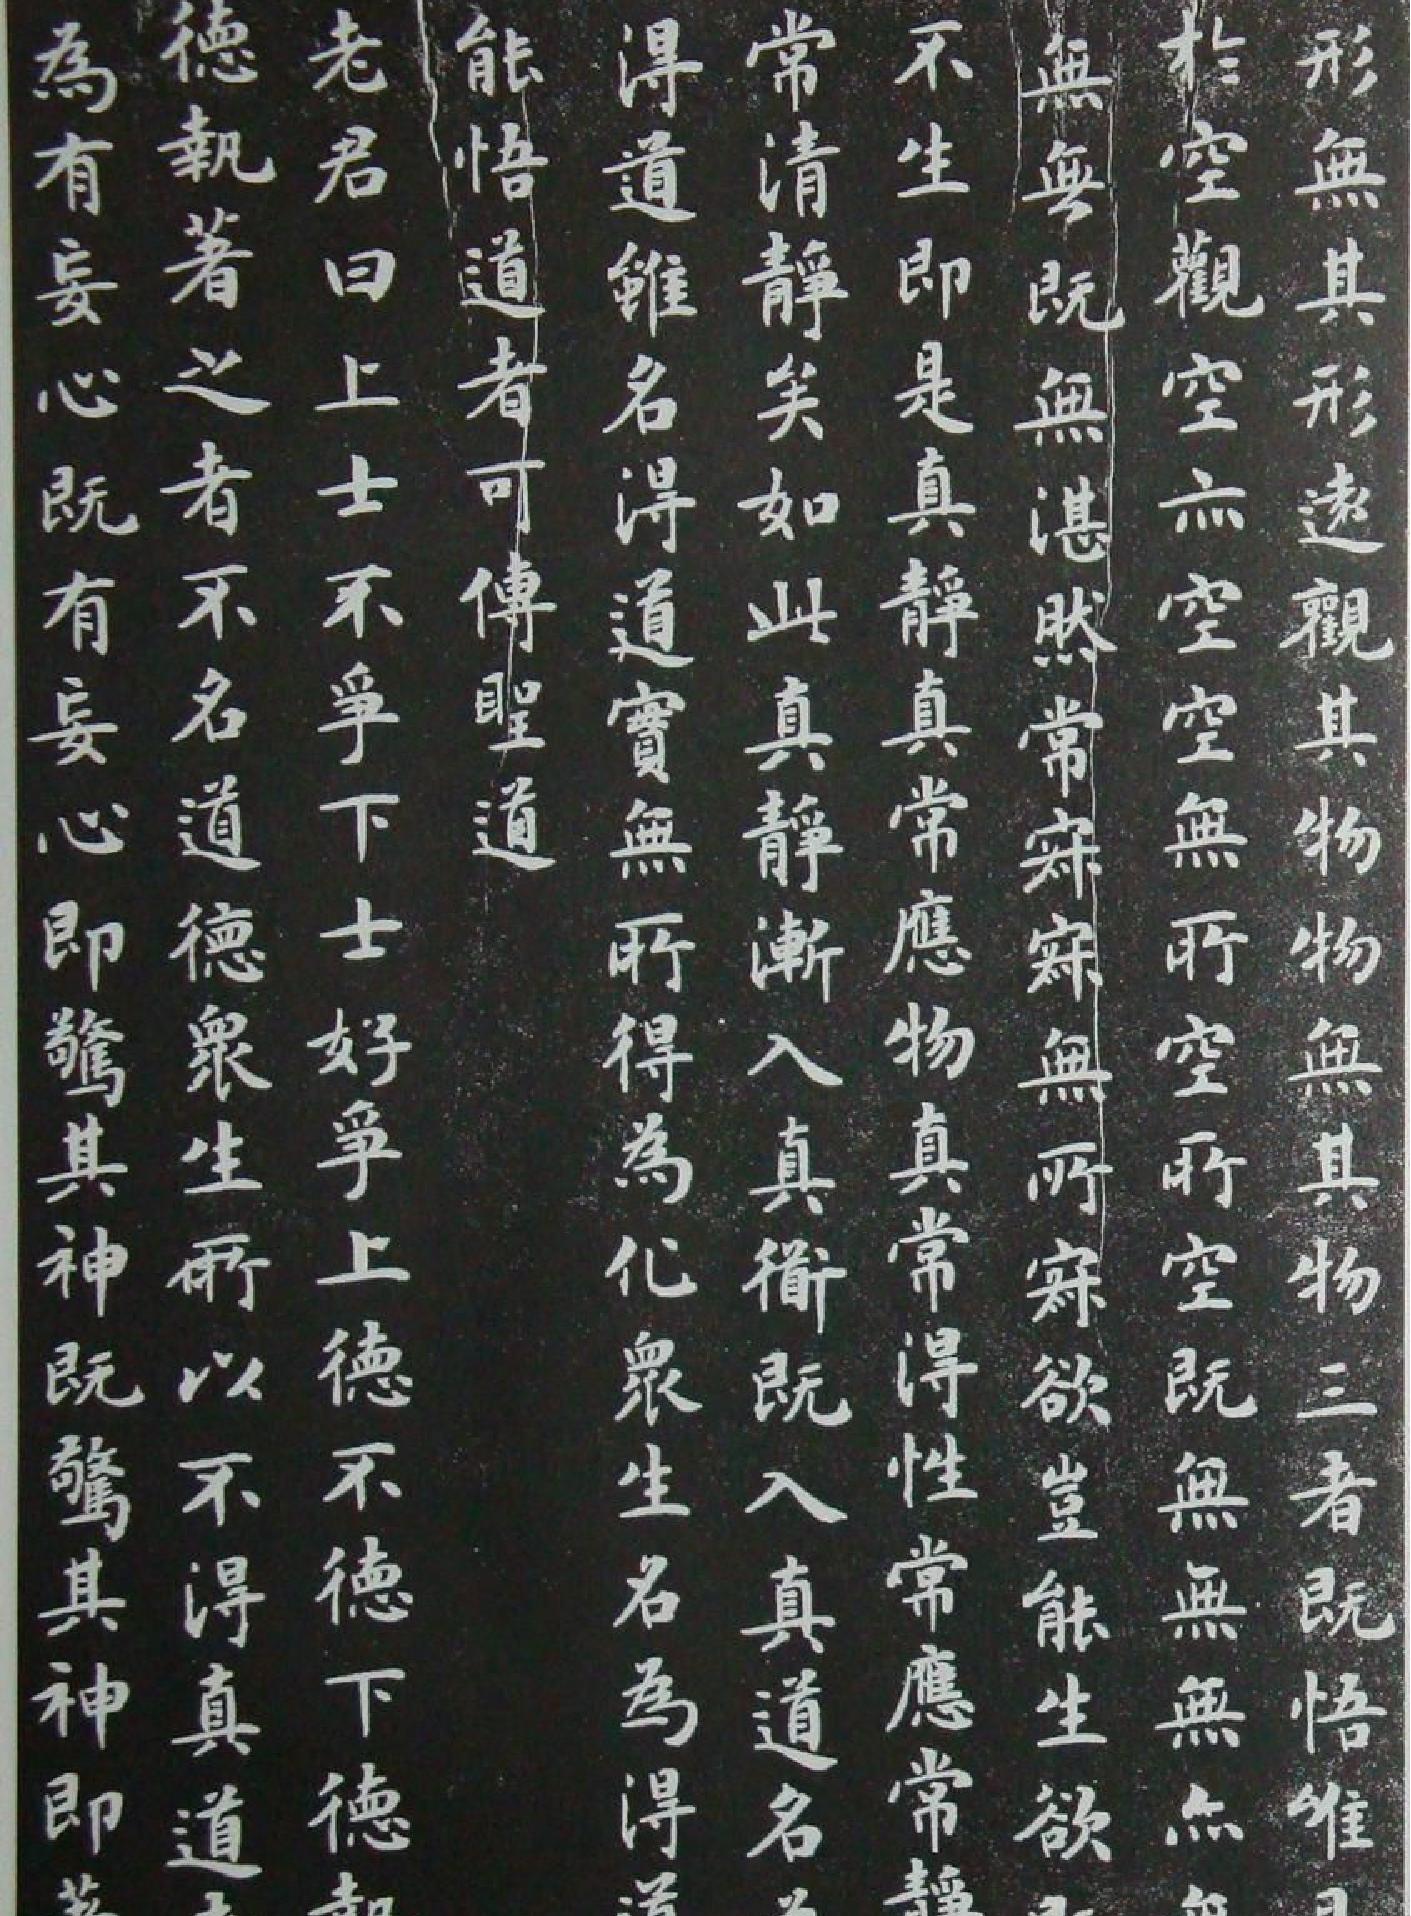 形無其形遠觀其物物無其物三者既悟唯
於空觀空亦空空無所空所空既無無無亦
無無既無湛然常寂寂無所寂欲豈能生欲
不生即是真靜真常應物真常得性常應常靜
常清靜矣如此真靜漸入真道既入真道名
得道雖名得道實無所得為化眾生名為得道
能悟道者可傳聖道
老君曰上士不爭下士好爭上德不德下德執
德執著之者不名道德眾生所以不得真道
為有妄心既有妄心即驚其神既驚其神即著